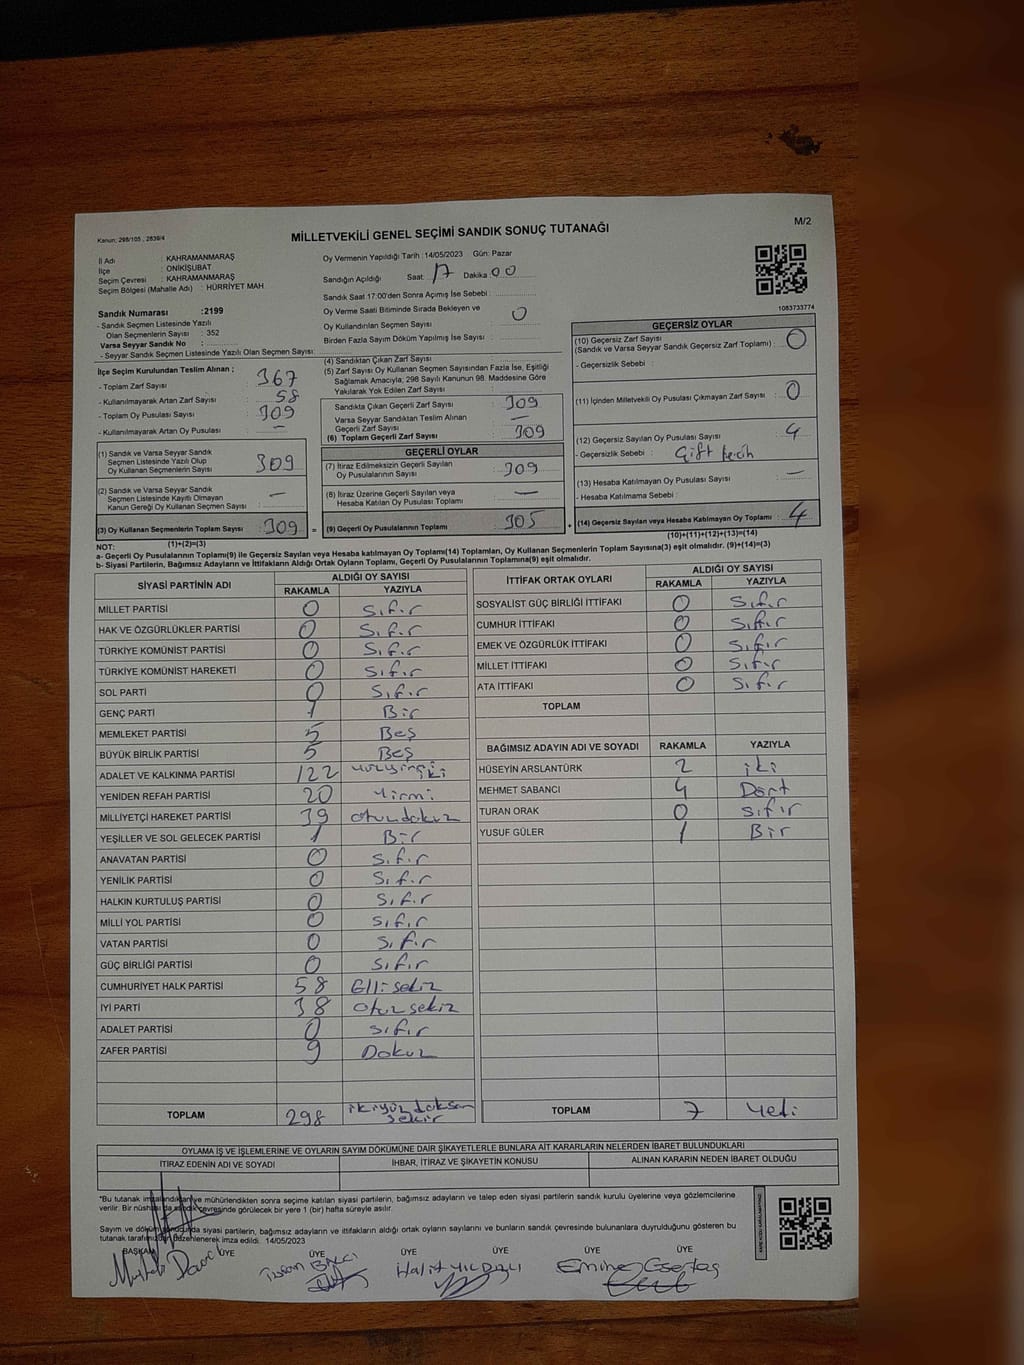 Kanun: 298/105 , 2839/4
MİLLETVEKİLİ GENEL SEÇİMİ SANDIK SONUÇ TUTANAĞI
M/2
İl Adı : KAHRAMANMARAŞ
İlçe : ONİKİŞUBAT
Seçim Çevresi : KAHRAMANMARAŞ
Seçim Bölgesi (Mahalle Adı) : HÜRRİYET MAH.
Sandık Numarası :2199
- Sandık Seçmen Listesinde Yazılı
Olan Seçmenlerin Sayısı : 352
Varsa Seyyar Sandık No :
- Seyyar Sandık Seçmen Listesinde Yazılı Olan Seçmen Sayısı:
Oy Vermenin Yapıldığı Tarih :14/05/2023 Gün: Pazar
Sandığın Açıldığı Saat: 17 Dakika: 00
Sandık Saat 17:00'den Sonra Açımış İse Sebebi :
Oy Verme Saati Bitiminde Sırada Bekleyen ve
Oy Kullandırılan Seçmen Sayısı : 0
Birden Fazla Sayım Döküm Yapılmış İse Sayısı :
1083733774
İlçe Seçim Kurulundan Teslim Alınan ;
- Toplam Zarf Sayısı : 367
- Kullanılmayarak Artan Zarf Sayısı : 58
- Toplam Oy Pusulası Sayısı : 309
- Kullanılmayarak Artan Oy Pusulası : –
(1) Sandık ve Varsa Seyyar Sandık
Seçmen Listesinde Yazılı Olup
Oy Kullanan Seçmenlerin Sayısı : 309
(2) Sandık ve Varsa Seyyar Sandık
Seçmen Listesinde Kayıtlı Olmayan
Kanun Gereği Oy Kullanan Seçmen Sayısı : –
(3) Oy Kullanan Seçmenlerin Toplam Sayısı : 309
(1)+(2)=(3)
(4) Sandıktan Çıkan Zarf Sayısı :
(5) Zarf Sayısı Oy Kullanan Seçmen Sayısından Fazla İse, Eşitliği
Sağlamak Amacıyla; 298 Sayılı Kanunun 98. Maddesine Göre
Yakılarak Yok Edilen Zarf Sayısı :
Sandıkta Çıkan Geçerli Zarf Sayısı : 309
Varsa Seyyar Sandıktan Teslim Alınan
Geçerli Zarf Sayısı : –
(6) Toplam Geçerli Zarf Sayısı : 309
GEÇERLİ OYLAR
(7) İtiraz Edilmeksizin Geçerli Sayılan
Oy Pusulalarının Sayısı : 309
(8) İtiraz Üzerine Geçerli Sayılan veya
Hesaba Katılan Oy Pusulası Toplamı : –
= (9) Geçerli Oy Pusulalarının Toplamı : 305
GEÇERSİZ OYLAR
(10) Geçersiz Zarf Sayısı
(Sandık ve Varsa Seyyar Sandık Geçersiz Zarf Toplamı) : 0
- Geçersizlik Sebebi :
(11) İçinden Milletvekili Oy Pusulası Çıkmayan Zarf Sayısı : 0
(12) Geçersiz Sayılan Oy Pusulası Sayısı : 4
- Geçersizlik Sebebi : Çift tercih
(13) Hesaba Katılmayan Oy Pusulası Sayısı : –
- Hesaba Katılmama Sebebi :
+ (14) Geçersiz Sayılan veya Hesaba Katılmayan Oy Toplamı : 4
(10)+(11)+(12)+(13)=(14)
NOT:
a- Geçerli Oy Pusulalarının Toplamı(9) ile Geçersiz Sayılan veya Hesaba katılmayan Oy Toplamı(14) Toplamları, Oy Kullanan Seçmenlerin Toplam Sayısına(3) eşit olmalıdır. (9)+(14)=(3)
b- Siyasi Partilerin, Bağımsız Adayların ve İttifakların Aldığı Ortak Oyların Toplamı, Geçerli Oy Pusulalarının Toplamına(9) eşit olmalıdır.
SİYASİ PARTİNİN ADI ALDIĞI OY SAYISI
RAKAMLA YAZIYLA
MİLLET PARTİSİ 0 Sıfır
HAK VE ÖZGÜRLÜKLER PARTİSİ 0 Sıfır
TÜRKİYE KOMÜNİST PARTİSİ 0 Sıfır
TÜRKİYE KOMÜNİST HAREKETİ 0 Sıfır
SOL PARTİ 0 Sıfır
GENÇ PARTİ 1 Bir
MEMLEKET PARTİSİ 5 Beş
BÜYÜK BİRLİK PARTİSİ 5 Beş
ADALET VE KALKINMA PARTİSİ 122 yüzyirmi iki
YENİDEN REFAH PARTİSİ 20 Yirmi
MİLLİYETÇİ HAREKET PARTİSİ 39 otuzdokuz
YEŞİLLER VE SOL GELECEK PARTİSİ 1 Bir
ANAVATAN PARTİSİ 0 Sıfır
YENİLİK PARTİSİ 0 Sıfır
HALKIN KURTULUŞ PARTİSİ 0 Sıfır
MİLLİ YOL PARTİSİ 0 Sıfır
VATAN PARTİSİ 0 Sıfır
GÜÇ BİRLİĞİ PARTİSİ 0 Sıfır
CUMHURİYET HALK PARTİSİ 58 Elli sekiz
İYİ PARTİ 38 otuzsekiz
ADALET PARTİSİ 0 Sıfır
ZAFER PARTİSİ 9 Dokuz
TOPLAM 298 ikiyüzdoksan sekiz
İTTİFAK ORTAK OYLARI ALDIĞI OY SAYISI
RAKAMLA YAZIYLA
SOSYALİST GÜÇ BİRLİĞİ İTTİFAKI 0 Sıfır
CUMHUR İTTİFAKI 0 Sıfır
EMEK VE ÖZGÜRLÜK İTTİFAKI 0 Sıfır
MİLLET İTTİFAKI 0 Sıfır
ATA İTTİFAKI 0 Sıfır
TOPLAM
BAĞIMSIZ ADAYIN ADI VE SOYADI RAKAMLA YAZIYLA
HÜSEYİN ARSLANTÜRK 2 iki
MEHMET SABANCI 4 Dört
TURAN ORAK 0 sıfır
YUSUF GÜLER 1 Bir
TOPLAM 7 Yedi
OYLAMA İŞ VE İŞLEMLERİNE VE OYLARIN SAYIM DÖKÜMÜNE DAİR ŞİKAYETLERLE BUNLARA AİT KARARLARIN NELERDEN İBARET BULUNDUKLARI
İTİRAZ EDENİN ADI VE SOYADI İHBAR, İTİRAZ VE ŞİKAYETİN KONUSU ALINAN KARARIN NEDEN İBARET OLDUĞU
*Bu tutanak imzalandıktan ve mühürlendikten sonra seçime katılan siyasi partilerin, bağımsız adayların ve talep eden siyasi partilerin sandık kurulu üyelerine veya gözlemcilerine
verilir. Bir nüshası da sandık çevresinde görülecek bir yere 1 (bir) hafta süreyle asılır.
Sayım ve döküm sonucunda siyasi partilerin, bağımsız adayların ve ittifakların aldığı ortak oyların sayılarını ve bunların sandık çevresinde bulunanlara duyrulduğunu gösteren bu
tutanak tarafımızdan düzenlenerek imza edildi. 14/05/2023
BAŞKAN ÜYE ÜYE ÜYE ÜYE ÜYE ÜYE
Halit Emine